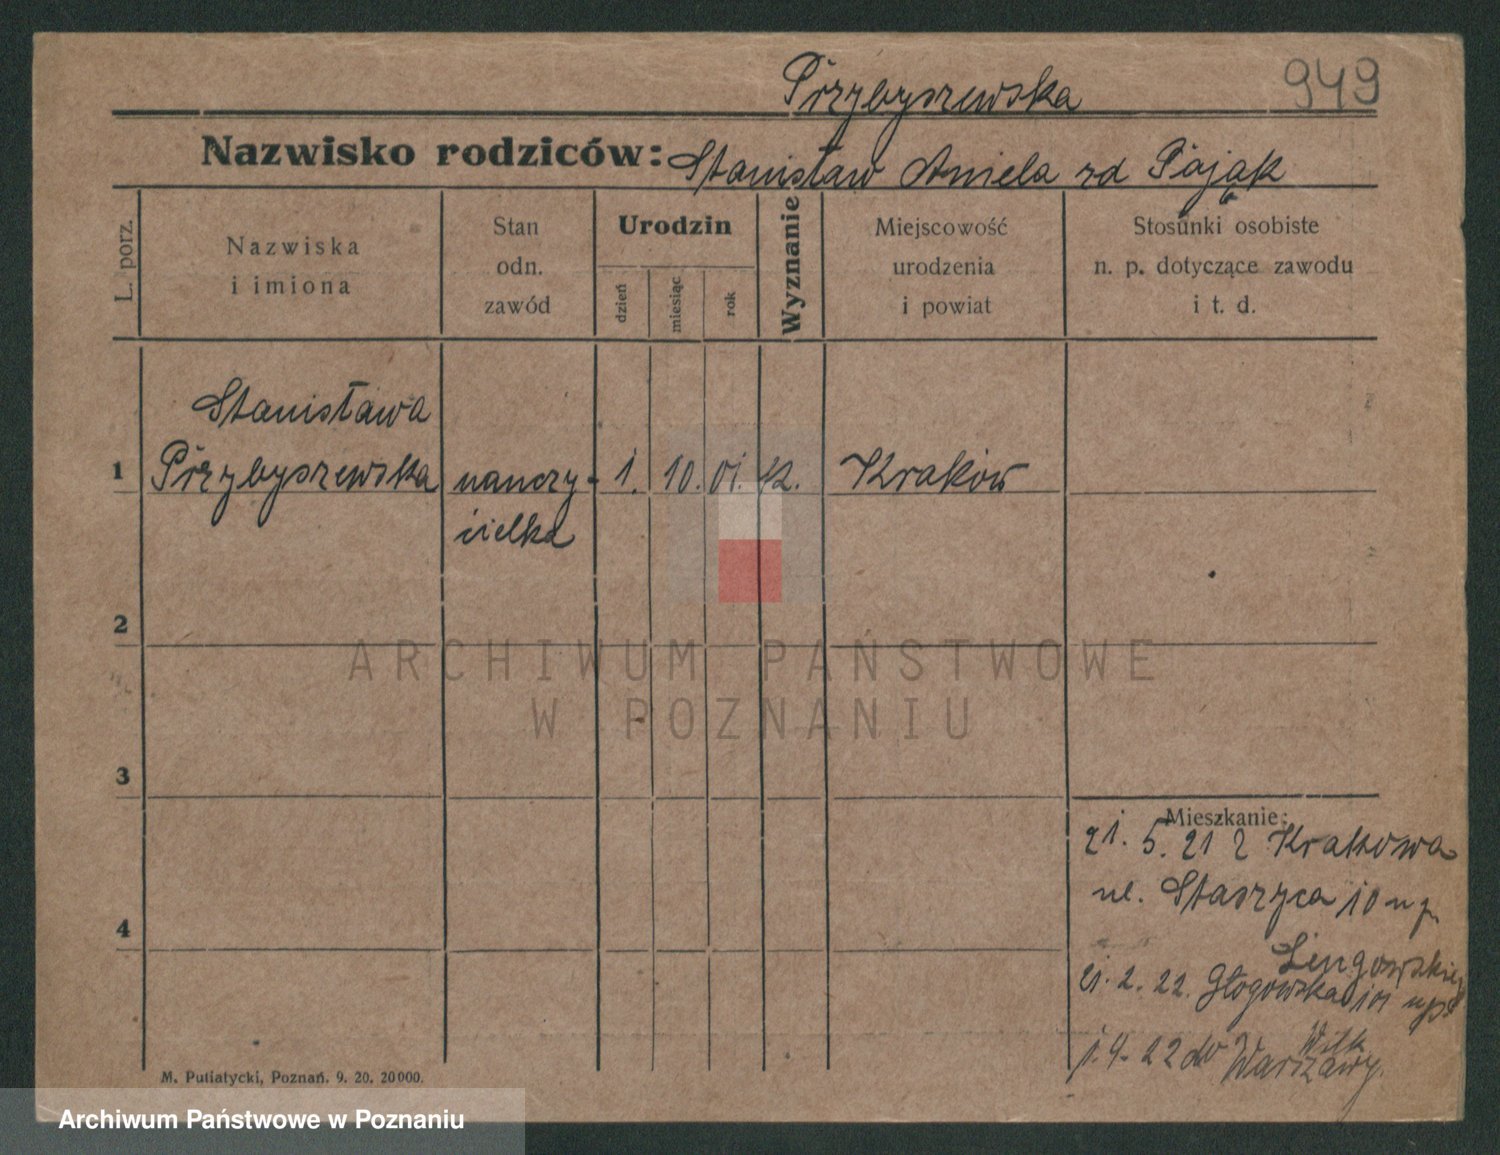 Przybyszewska
949
Nazwisko rodziców: Stanisław Aniela zd Pająk
L. porz.
Nazwiska
i imiona
Stan
odn.
zawód
Urodzin
dzień
miesiąc
rok
Wyznanie
Miejscowość
urodzenia
i powiat
Stosunki osobiste
n. p. dotyczące zawodu
i t. d.
Stanisława
1 Przybyszewska nauczy- 1. 10. 01. k. Kraków
cielka
2
3
4
Mieszkanie:
21. 5. 21 z Krakowa
ul. Staszyca 10 u p.
21. 2. 22. Głogowska 101 u p.
Wilk
1. 4. 22 do Warszawy.
M. Putiatycki, Poznań. 9. 20. 20000.
ARCHIWUM PAŃSTWOWE
W POZNANIU
Archiwum Państwowe w Poznaniu